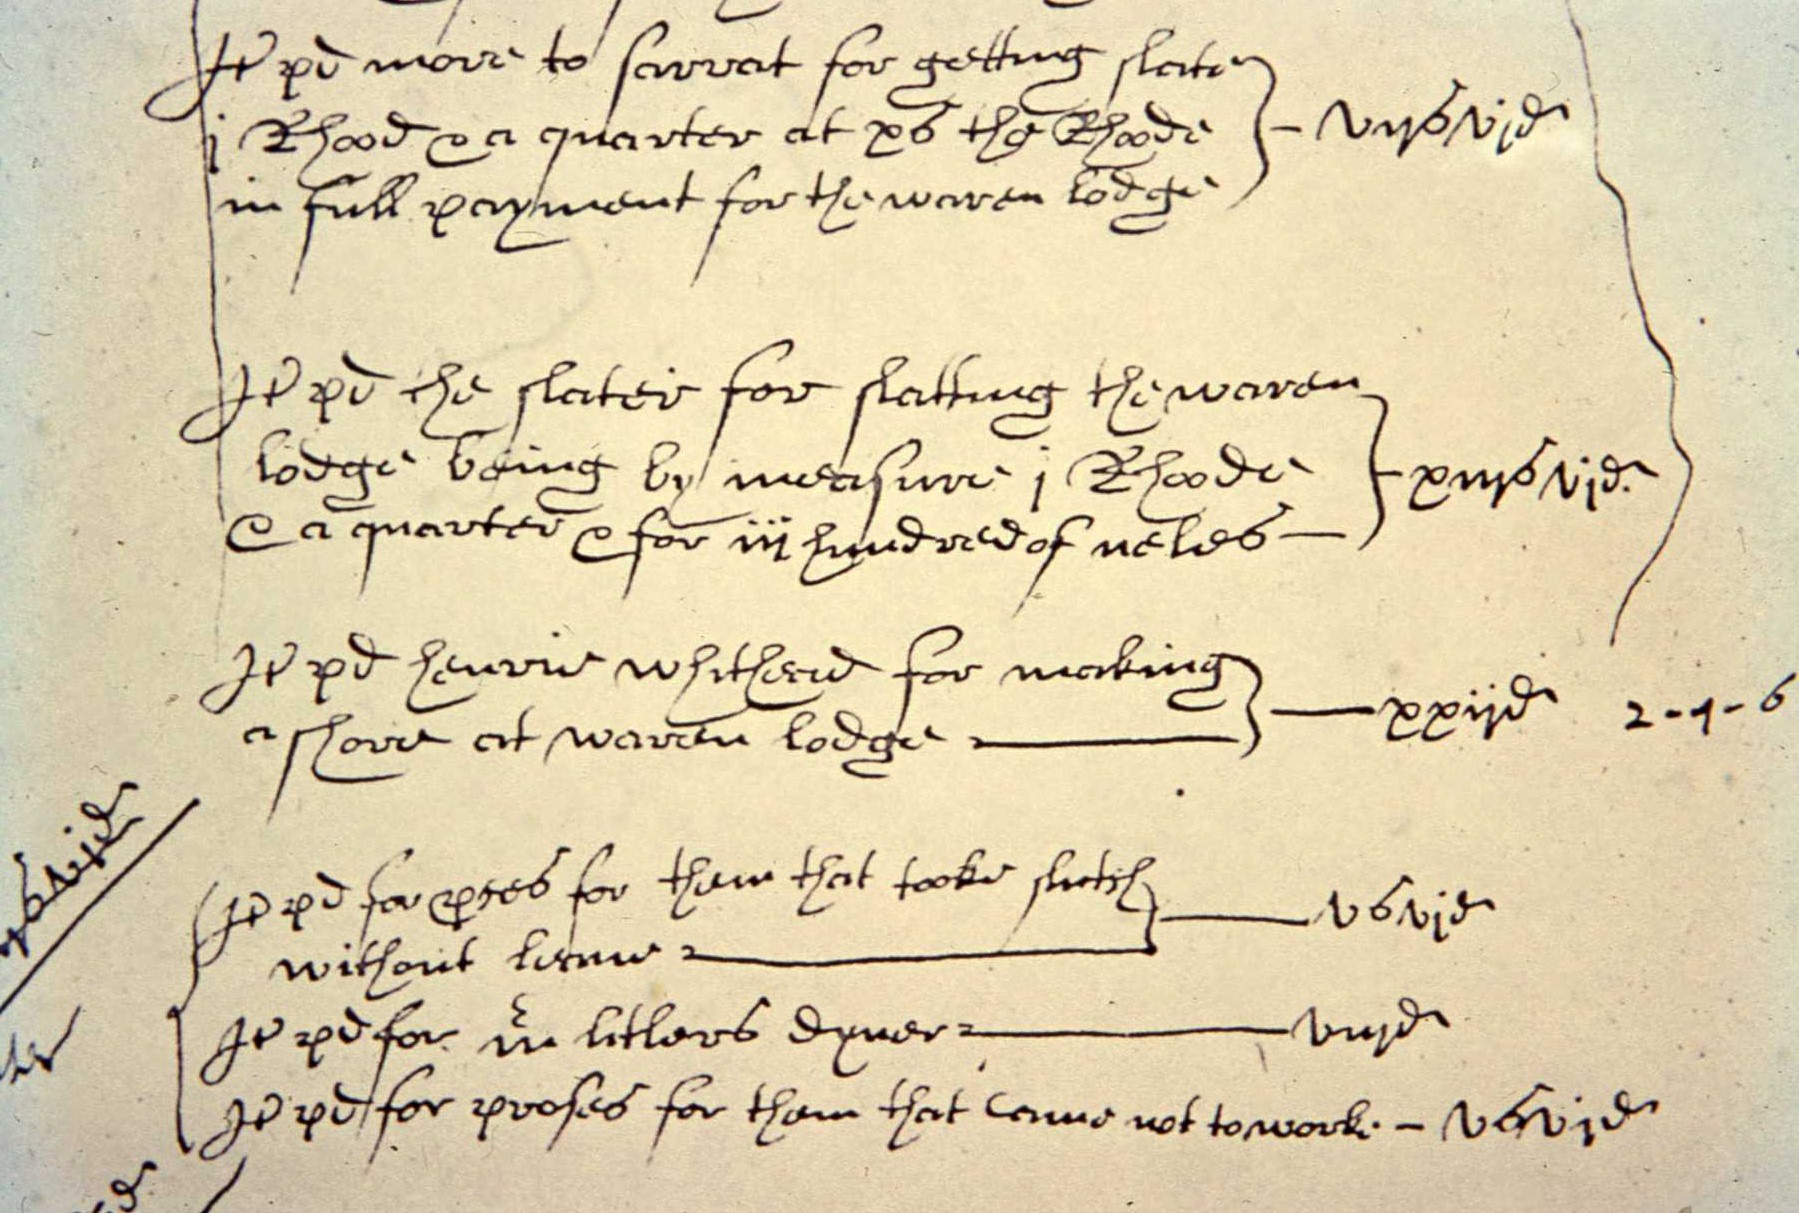 It pd more to sarrat for getting slate
j Rhood & a quarter at xs the Rhode
in full payment for the waren lodge
vijs vjd
It pd the slater for slatting the waren
lodge being by measure j Rhode
& a quarter & for iij hundred of neles
xiiijs vjd
It pd henrie whithead for making
a shore at waren lodge
xxijd
2-1-6
It pd for pses for them that tooke slutch
without leaue
vs vjd
It pd for mr litlers dyner
viijd
It pd for proses for them that Came not to worke
vs vjd